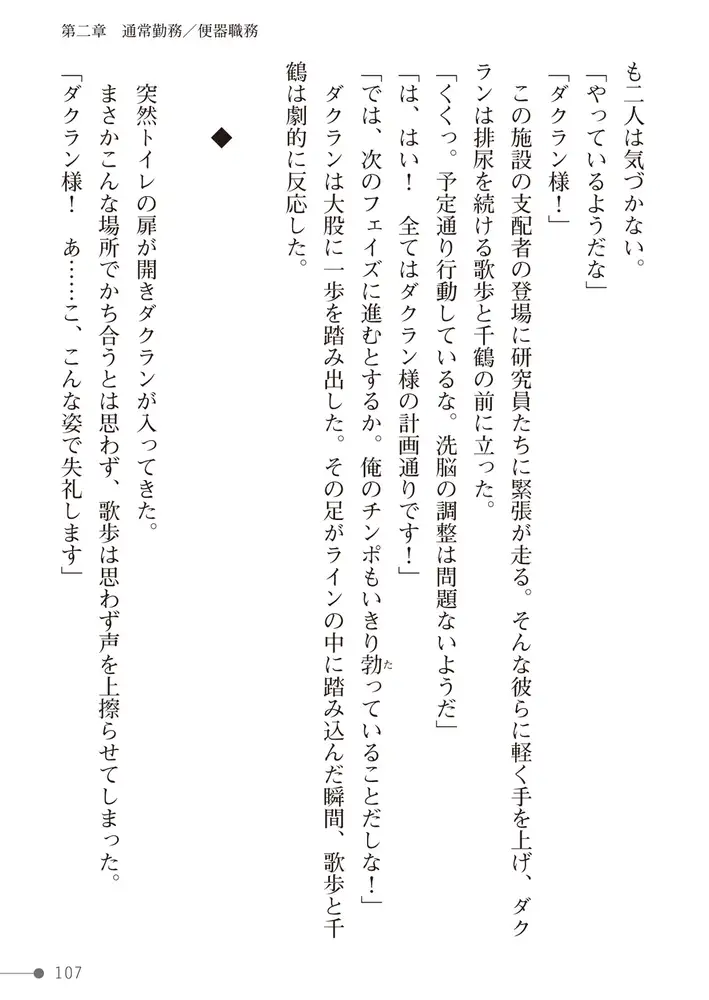 第二章　通常勤務／便器職務
も二人は気づかない。
「やっているようだな」
「ダクラン様！」
　この施設の支配者の登場に研究員たちに緊張が走る。そんな彼らに軽く手を上げ、ダク
ランは排尿を続ける歌歩と千鶴の前に立った。
「くくっ。予定通り行動しているな。洗脳の調整は問題ないようだ」
「は、はい！　全てはダクラン様の計画通りです！」
「では、次のフェイズに進むとするか。俺のチンポもいきり勃っていることだしな！」
　ダクランは大股に一歩を踏み出した。その足がラインの中に踏み込んだ瞬間、歌歩と千
鶴は劇的に反応した。
◆
　突然トイレの扉が開きダクランが入ってきた。
　まさかこんな場所でかち合うとは思わず、歌歩は思わず声を上擦らせてしまった。
「ダクラン様！　あ……こ、こんな姿で失礼します」
107